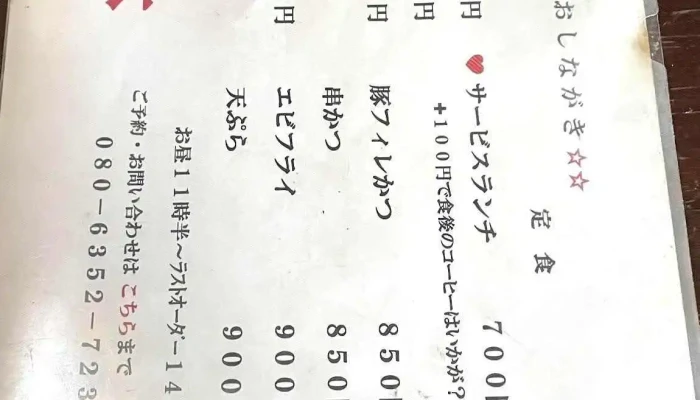 おしながき☆☆
定食
円
♥サービスランチ 700円
円
+100円で食後のコーヒーはいかが?
円
豚フィレかつ 850円
串かつ 850
円
エビフライ 900
天ぷら 900
お昼11時半〜ラストオーダー14
ご予約・お問い合わせはこちらまで
080-6352-723